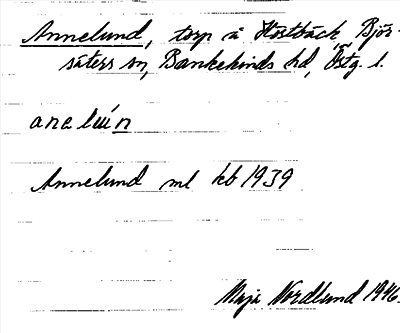 Annelund, torp å Hostbäck Björ-
säters sn, Bankekinds hd, Östg. l.
anelún
Annelund ml kb 1939
Maja Nordlund 1946.